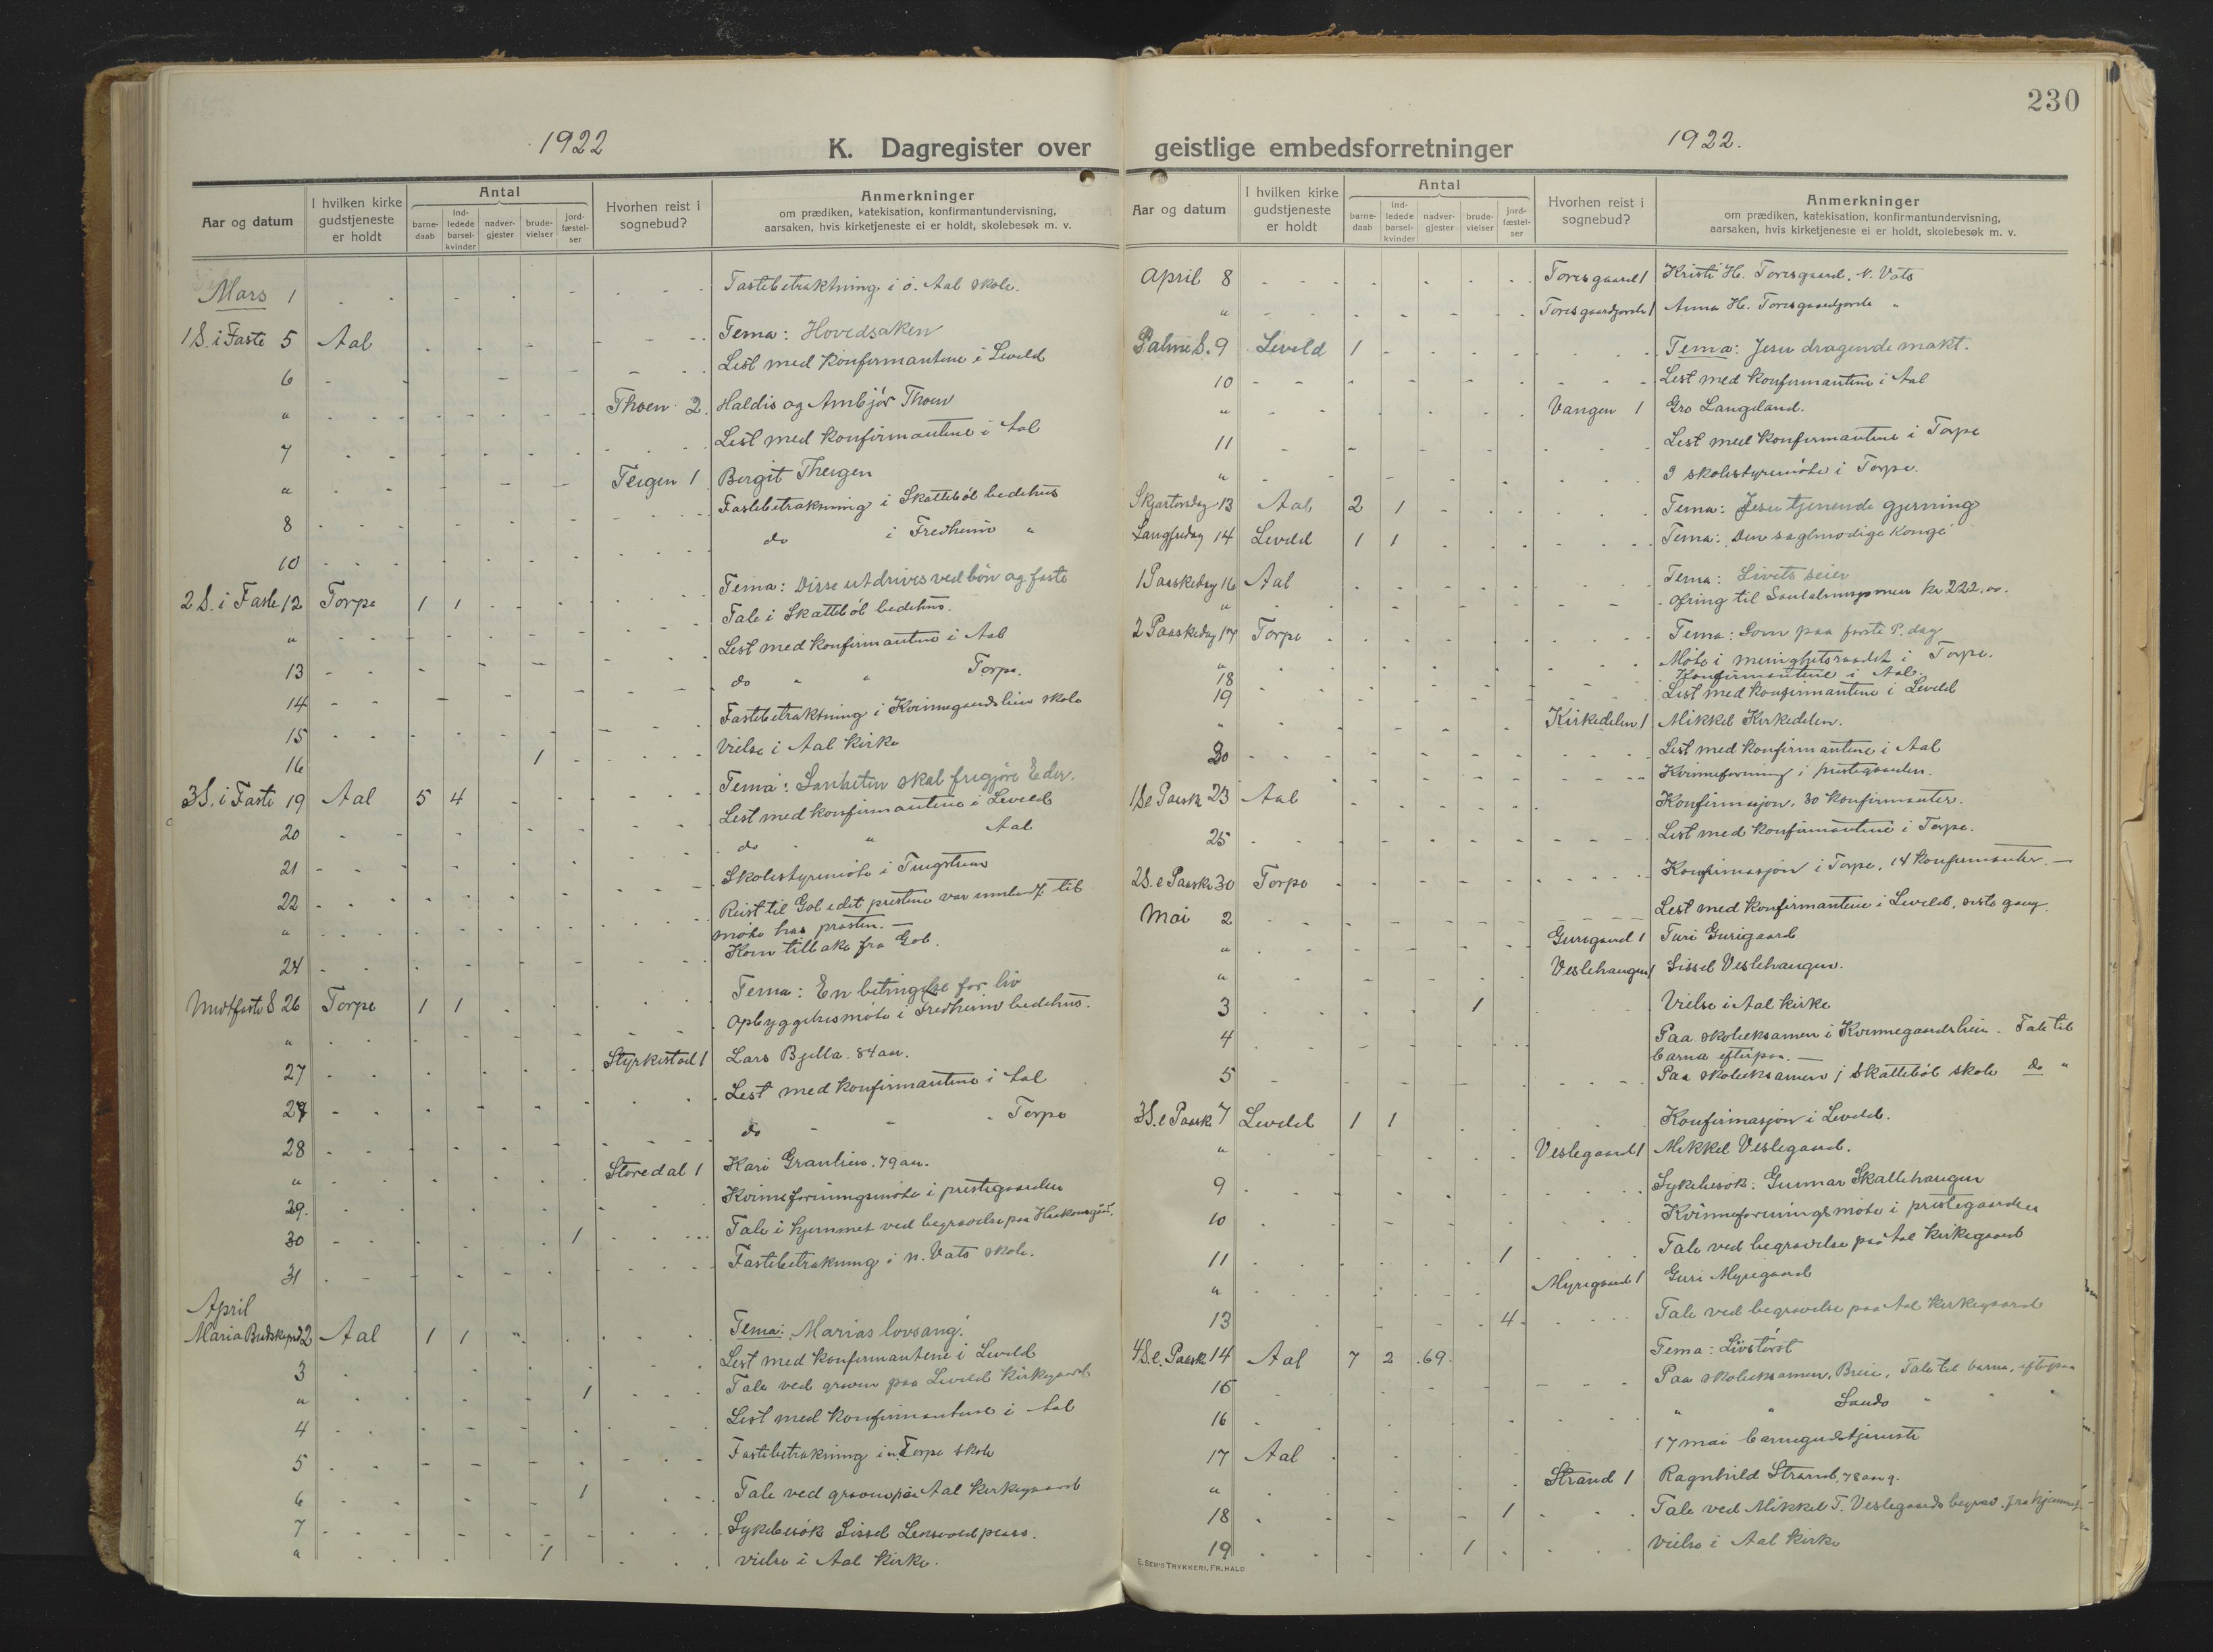 230
1922
K. Dagregister over
geistlige embedsforretninger
1922.
Aar og datum
I hvilken kirke gudstjeneste er holdt
Antal
barnedaab
indledede barselkvinder
nadvergjester
brudevielser
jordfæstelser
Hvorhen reist i sognebud?
Anmerkninger
om prædiken, katekisation, konfirmantundervisning,
aarsaken, hvis kirketjeneste ei er holdt, skolebesøk m. v.
Mars 1 Fastebetraktning i ö. Aal skole.
1 S. i Faste 5 Aal Tema: Hovedsaken
6 Lest med konfirmantene i Leveld
" Thoen 2 Haldis og Ambjör Thoen
7 Lest med konfirmantene i Aal
" Teigen 1 Bergit Theigen
8 Fastebetraktning i Skatteböl bedehus
10 do i Fredheim "
2 S. i Faste 12 Torpe 1 1 Tema: Disse utdrives ved bön og faste
" Tale i Skatteböl bedehus.
13 Lest med konfirmantene i Aal
14 do " " Torpe.
15 Fastebetraktning i Kvinnegaardslien skole
16 1 Vielse i Aal kirke
3 S. i Faste 19 Aal 5 4 Tema: Sanheten skal frigjöre Eder.
20 Lest med konfirmantene i Leveld
21 do " Aal
22 Skolestyremöte i Tingstuen
" Reist til Gol idet prestene var innkaldt til
möte hos prosten. —
24 Kom tilbake fra Gol.
Midtfaste S 26 Torpe 1 1 Tema: En betingelse for liv
" Opbyggelsesmöte i Fredheim bedehus.
27 Styrkestad 1 Lars Bjella. 84 aar.
27 Lest med konfirmantene i Aal
28 do " " Torpe
" Storedal 1 Kari Granlien. 79 aar.
29. Kvinneforeningsmöte i prestegaarden
30 1 Tale i hjemmet ved begravelse paa Haakonsgaard.
31 Fastebetraktning i n. Vats skole.
April
Maria Budskapsd 2 Aal 1 1 Tema: Marias lovsang.
3 Lest med konfirmantene i Leveld
" 1 Tale ved graven paa Leveld kirkegaard
4 Lest med konfirmantene i Aal
5 Fastebetraktning i n. Torpe skole
6 1 Tale ved graven paa Aal kirkegaard
7 Sykebesök Sissel plass.
" 1 vielse i Aal kirke.
Aar og datum
I hvilken kirke gudstjeneste er holdt
Antal
barnedaab
indledede barselkvinder
nadvergjester
brudevielser
jordfæstelser
Hvorhen reist i sognebud?
Anmerkninger
om prædiken, katekisation, konfirmantundervisning,
aarsaken, hvis kirketjeneste ei er holdt, skolebesøk m. v.
April 8 Toresgaard 1 Kristi H. Toresgaard. N. Vats
" Toresgaardjorde 1 Anna H. Toresgaardjorde "
Palme S. 9 Leveld 1 Tema: Jesu dragende makt.
10 Lest med konfirmantene i Aal
" Vangen 1 Gro Langeland.
11 Lest med konfirmantene i Torpe
" I skolestyremöte i Torpe.
Skjærtorsdag 13 Aal 2 1 Tema: Jesu tjenende gjerning
Langfredag 14 Leveld 1 1 Tema: Den sagtmodige konge
1 Paaskedag 16 Aal Tema: Livets seier
" Ofring til Santalmisjonen kr 222.00.
2 Paaskedag 17 Torpe Tema: Som paa förste P. dag
" Möte i menighetsraadet i Torpe.
18 Konfirmantene i Aal.
19 Lest med konfirmantene i Leveld
" Kirkedelen 1 Mikkel Kirkedelen.
20 Lest med konfirmantene i Aal
Kvinneforening i prestegaarden.
1 S e Paaske 23 Aal Konfirmasjon. 30 konfirmanter.
25 Lest med konfirmantene i Torpe.
2 S. e Paaske 30 Torpe Konfirmasjon i Torpe, 14 konfirmanter. —
Mai 2 Lest med konfirmantene i Leveld, siste gang.
" Gurigaard 1 Turi Gurigaard
" Veslehaugen 1 Sissel Veslehaugen.
3 1 Vielse i Aal kirke
4 Paa skoleeksamen i Kvinnegaardslien. Tale til
barna efterpaa. —
5 Paa skoleeksamen i Skatteböl skole do "
3 S. e Paask 7 Leveld 1 1 Konfirmasjon i Leveld.
" Veslegaard 1 Mikkel Veslegaard.
9 Sykebesök: Gunnar Skallehaugen
10 Kvinneforeningsmöte i prestegaarden
11 1 Tale ved begravelse paa Aal kirkegaard
" Myregaard 1 Guri Myregaard
13 4 Tale ved begravelse paa Aal kirkegaard
4 S e. Paask 14 Aal 7 2 69. Tema: Livstörst
15 Paa skoleeksamen, Breie, Tale til barna, efterpaa
16 " " Sando " "
17 Aal 17 mai barnegudstjeneste
" Strand 1 Ragnhild Strand, 78 aar g.
18 1 Tale ved Mikkel T. Veslegaards begrav. fra hjemmet
19 1 vielse i Aal kirke
E. SEM'S TRYKKERI, FR.HALD